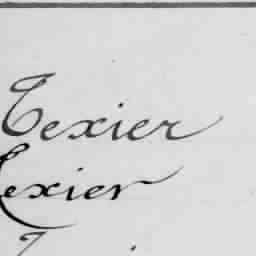 Texier
Texier